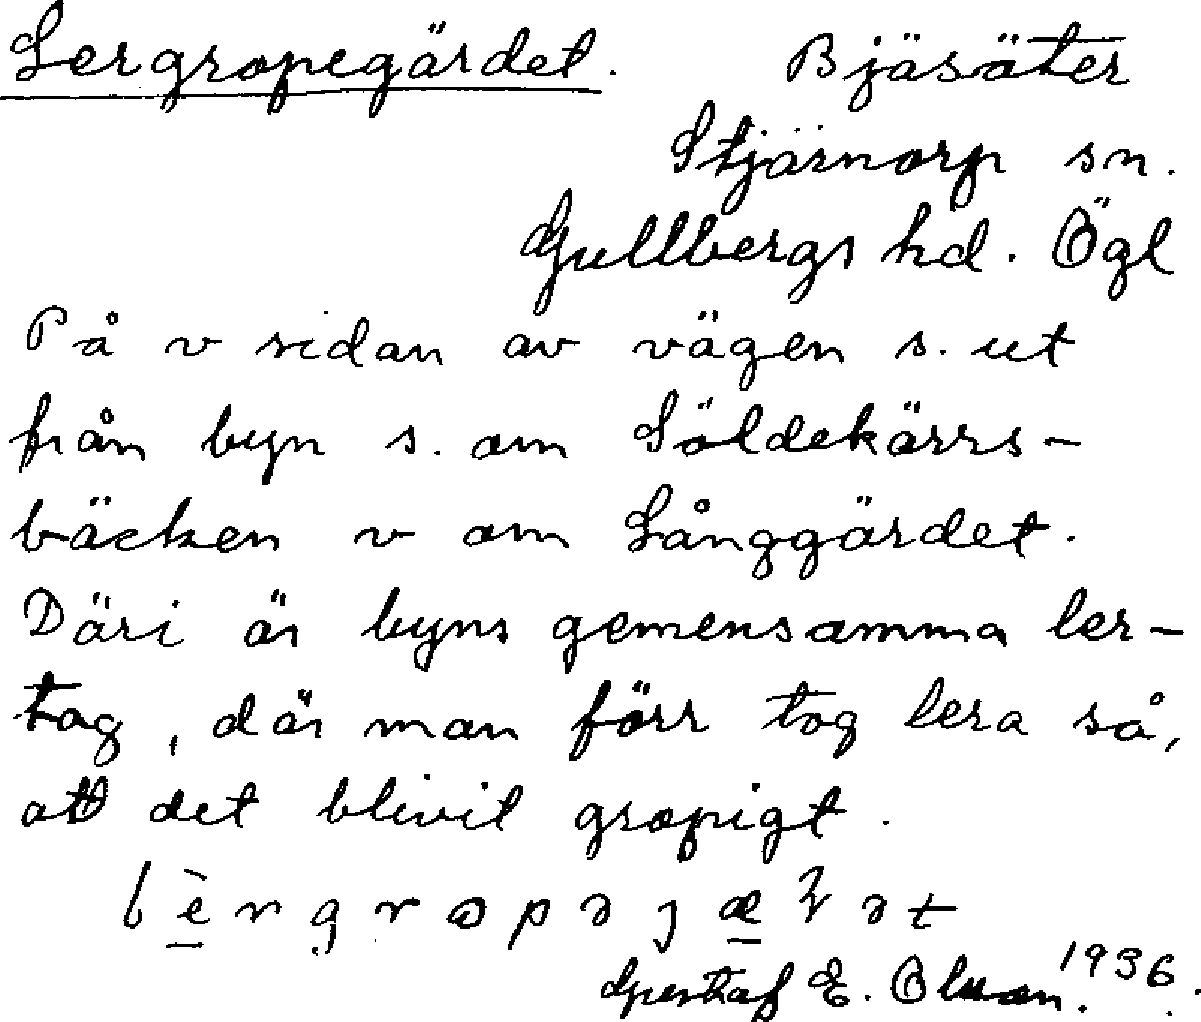 Lergropegärdet. Bjäsäter
Stjärnorp sn.
Gullbergs hd. Ögl
På v sidan av vägen s. ut
från byn s. om Söldekärrs-
bäcken v om Långgärdet.
Däri är byns gemensamma ler-
tag, där man förr tog lera så,
att det blivit gropigt.
Gustaf E. Olsson. 1936.